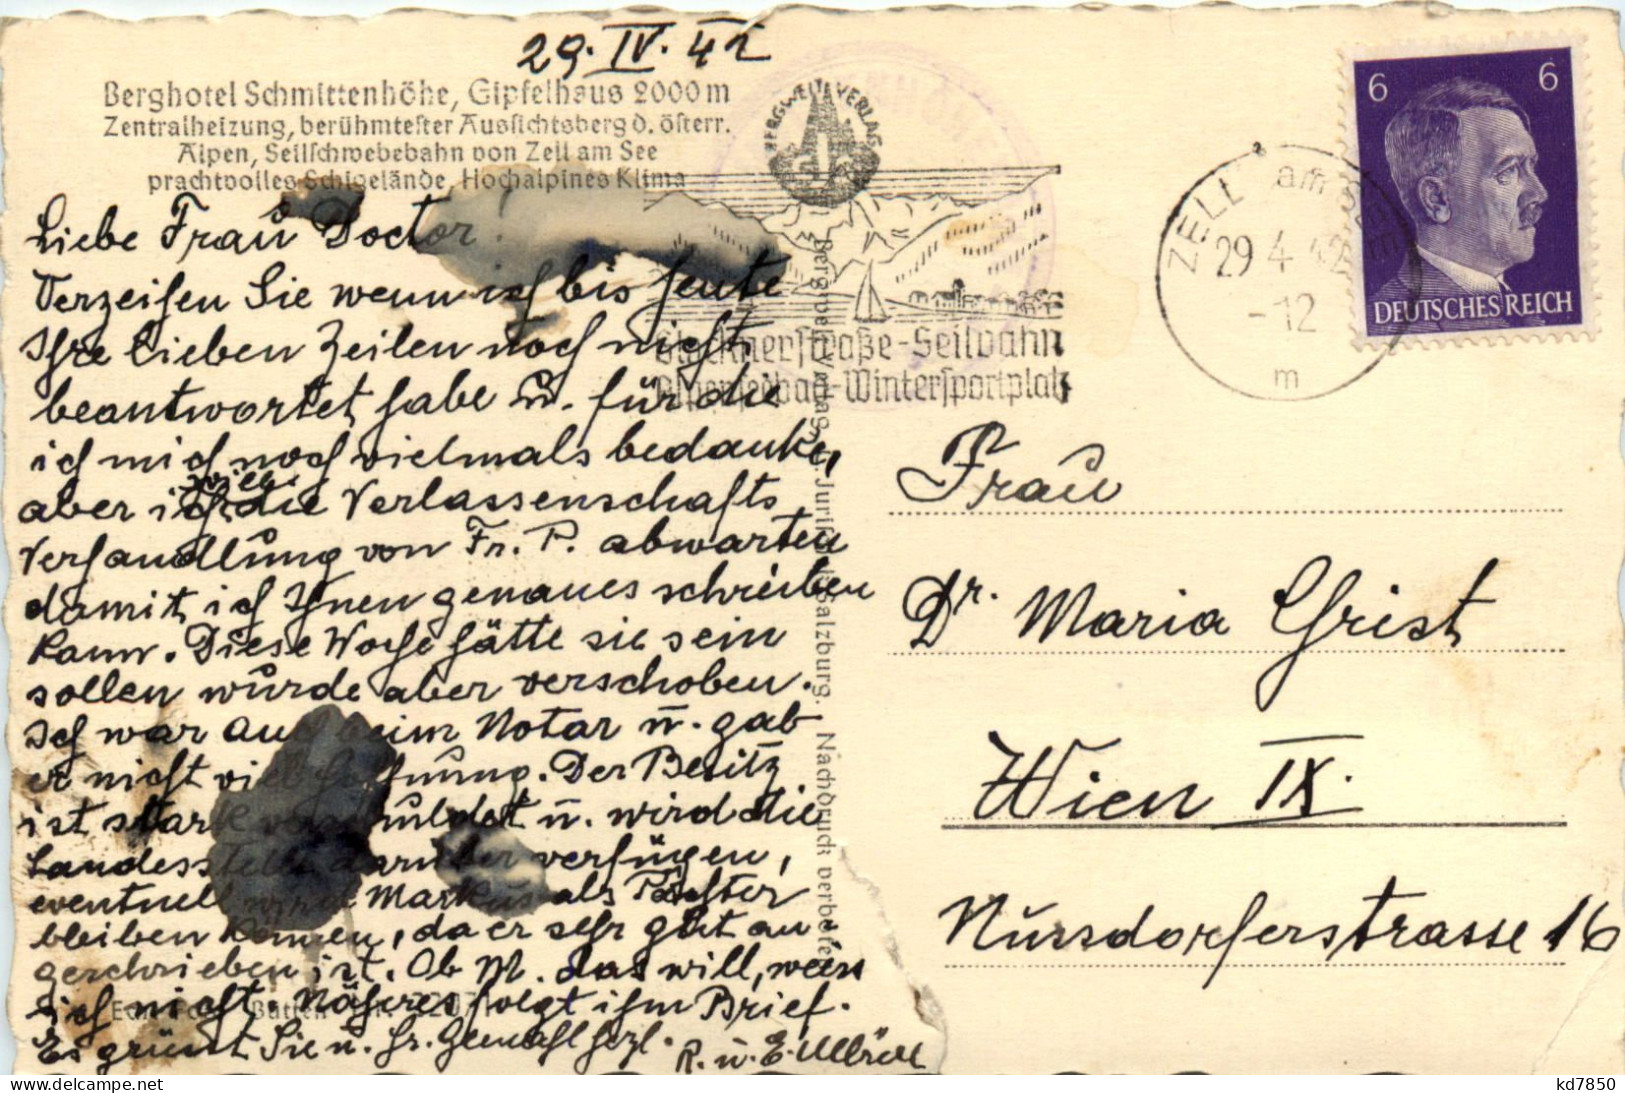 29. IV. 42
Berghotel Schmittenhöhe, Gipfelhaus 2000 m
Zentralheizung, berühmtester Aussichtsberg d. österr.
Alpen, Seilschwebebahn von Zell am See
prachtvolles Schigelände, Hochalpines Klima
Liebe Frau Doctor!
Verzeihen Sie wenn ich bis heute
Ihre lieben Zeilen noch nicht
beantwortet habe u. für die
ich mich noch vielmals bedanke,
aber ich will die Verlassenschafts
Verhandlung von Fr. P. abwarten
damit ich Ihnen genaues schreiben
kann. Diese Woche hätte sie sein
sollen wurde aber verschoben.
Ich war auch beim Notar u. gab
er nicht viel Hoffnung. Der Besitz
ist stark verschuldet u. wird die
Landesstelle darüber verfügen,
eventuell wird Markus als Pächter
bleiben können, da er sehr gut an
geschrieben ist. Ob M. das will, weis
ich nicht. Näheres folgt ihm Brief.
Es grüsst Sie u. Hr. Gemahl herzl.
R. u. E.
BERGWELT VERLAG
Glocknerstraße-Seilbahn
Alpenseebad-Wintersportplatz
Bergwelt Verlag
Salzburg. Nachdruck verboten
ZELL am SEE
29 4 42
-12
m
6 6
DEUTSCHES REICH
Frau
Dr. Maria Christ
Wien IX.
Nussdorferstrasse 16
kd7850